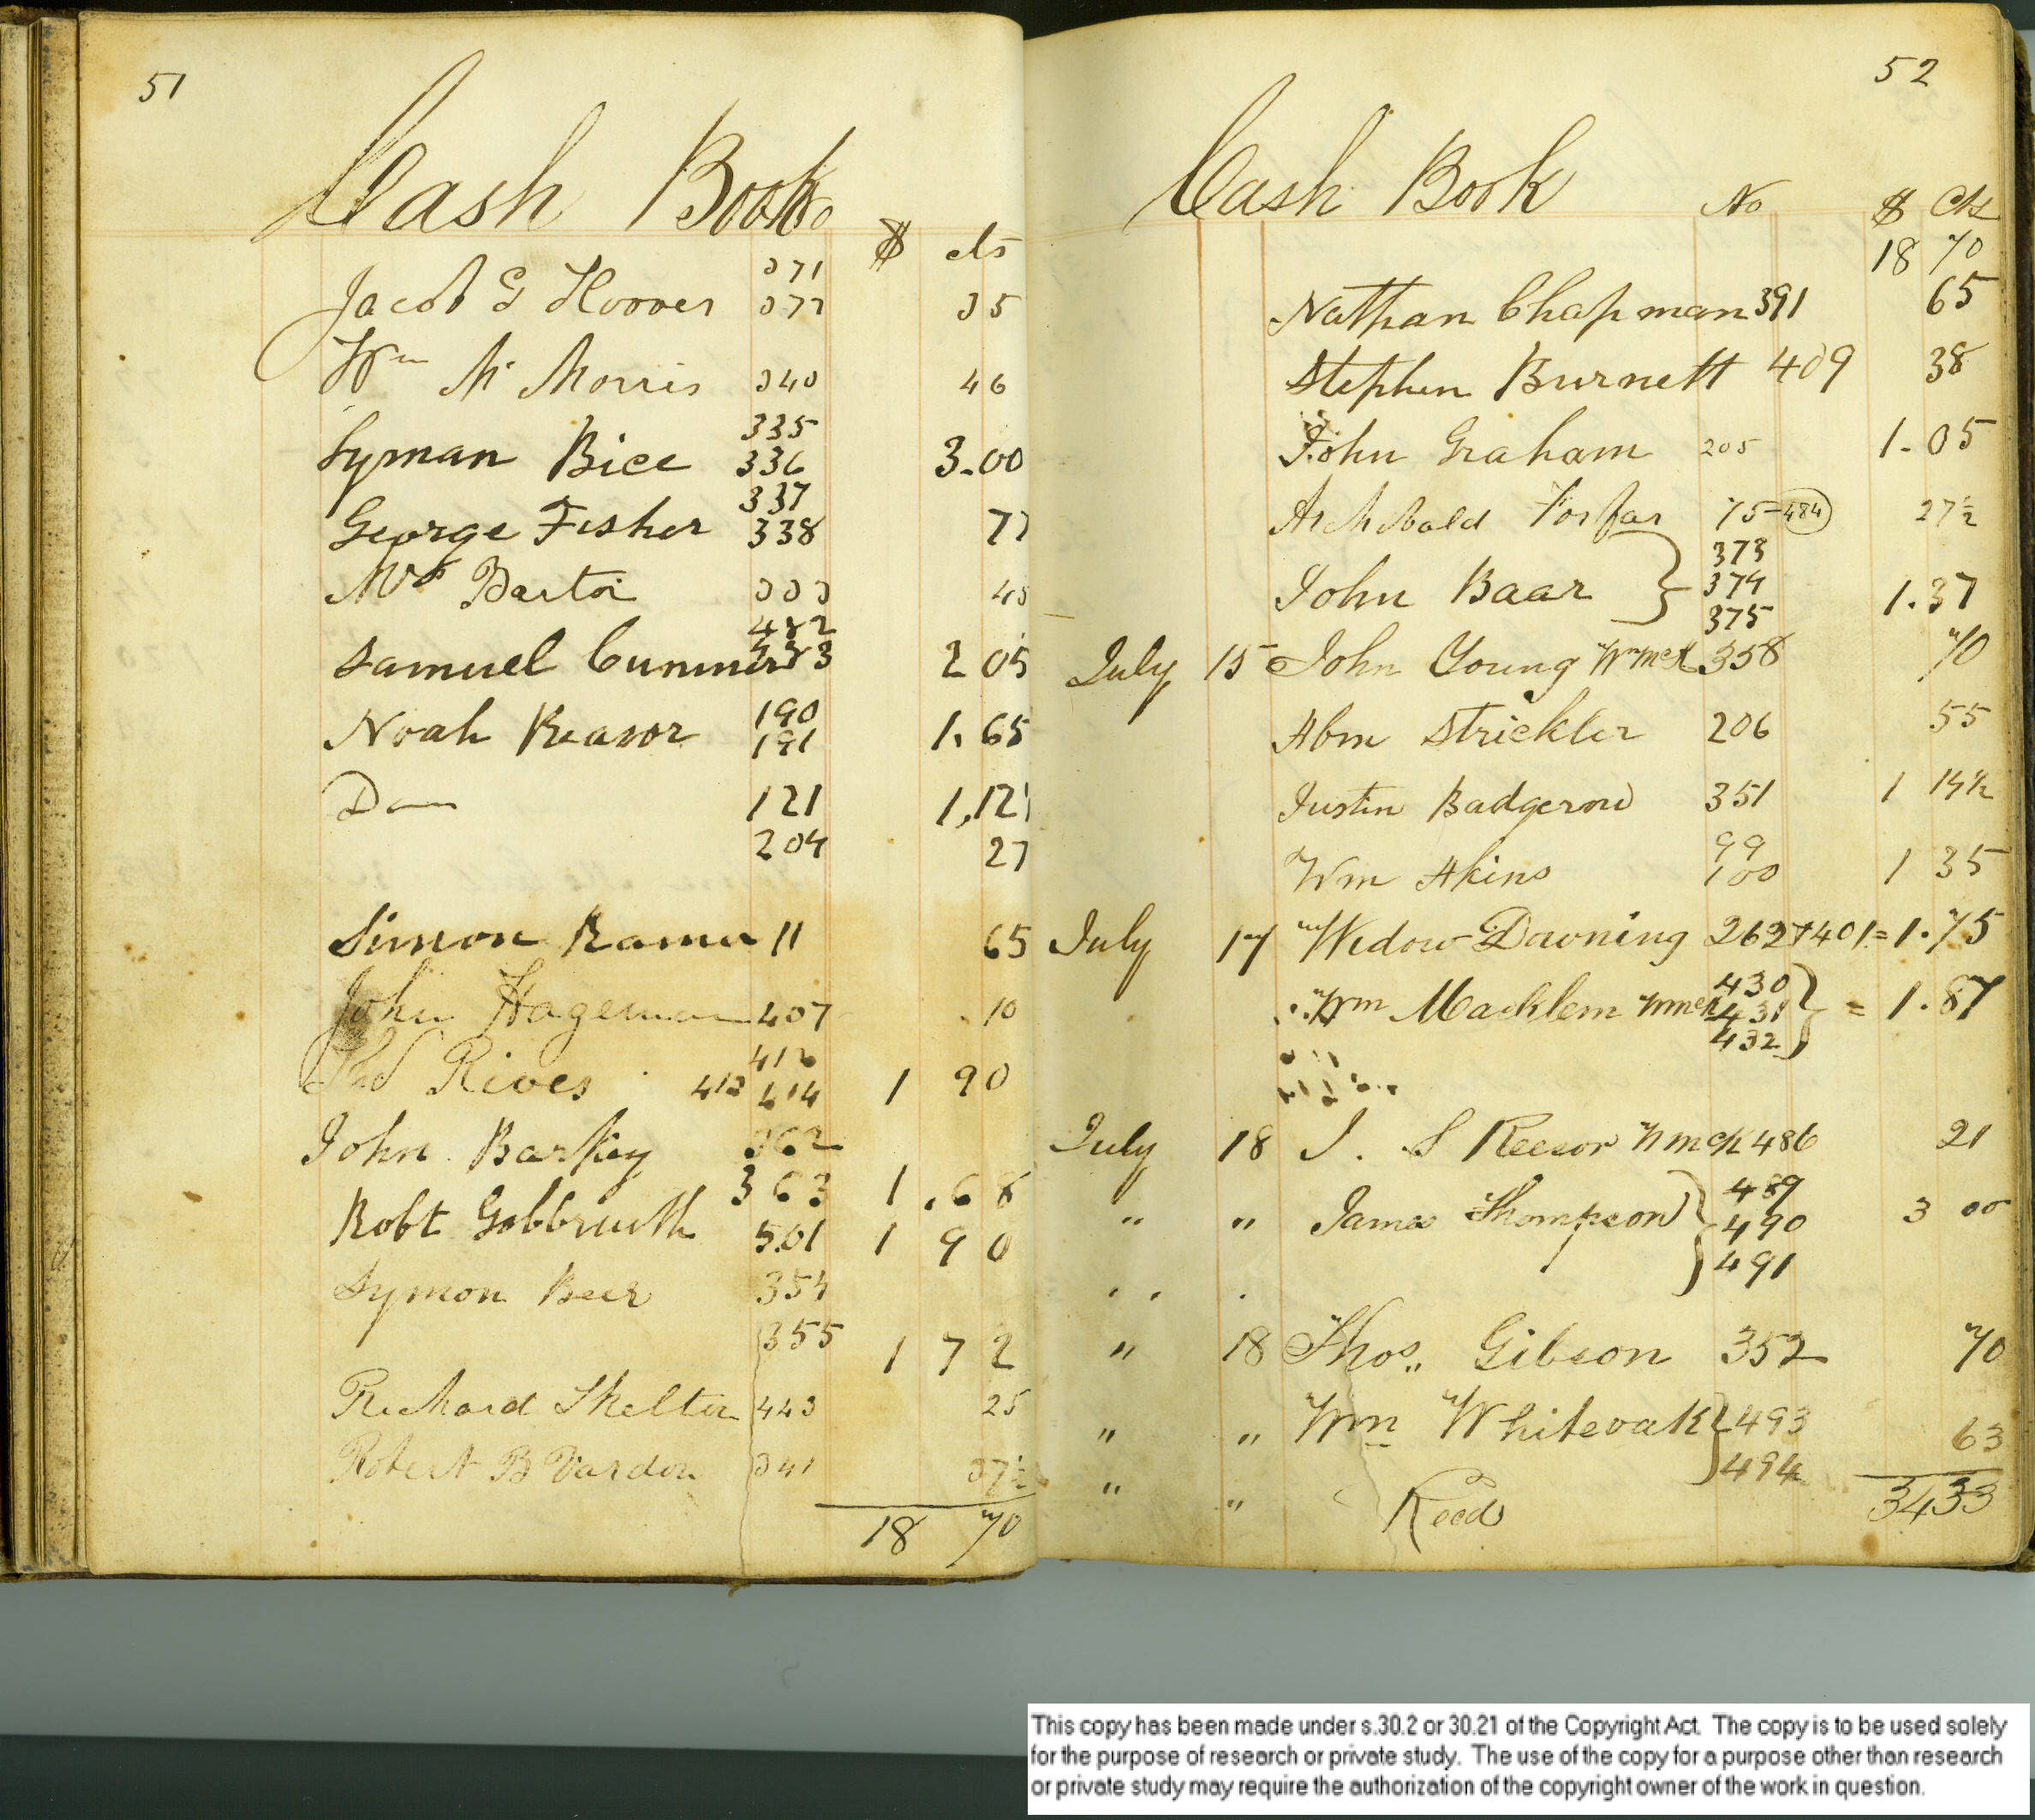 51
Cash Book
No
$ cts
371
Jacob G Hoover 377 35
Wm Mc Morris 340 46
335
Syman Bice 336 3.00
337
George Fisher 338 77
Mrs Barton 333 48
482
Samuel Cummer 483 2 05
190
Noah Reasor 191 1.65
Do 121 1,12
204 27
Simon Ramer 11 65
John Hageman 407 10
Rives 413 414 1 90
John Barkey 362
363 1.68
Robt 501 1 90
Symon Beer 354
355 1 72
Richard Skelton 443 25
Robert B Vardon 341 37½
18 70
52
Cash Book No $ Cts
18 70
Nathan Chapman 391 65
Stephen Burnett 409 38
John Graham 205 1.05
Archibald Forfar 75-484 27½
373
John Baar } 374 1.37
375
July 15 John Young WmcK 358 70
Abm Strickler 206 55
Justin Badgerow 351 1 14½
99
Wm Akins 100 1 35
July 17 Widow Downing 262+401=1.75
430
Wm Macklem WmcK 431 } = 1.87
432
July 18 J. S Reesor WmcK 486 21
489
" " James Thompson } 490 3 00
491
" 18 Thos,, Gibson 352 70
" " Wm Whiteoak } 493 63
494
" " Reeds 34 33
This copy has been made under s.30.2 or 30.21 of the Copyright Act. The copy is to be used solely
for the purpose of research or private study. The use of the copy for a purpose other than research
or private study may require the authorization of the copyright owner of the work in question.